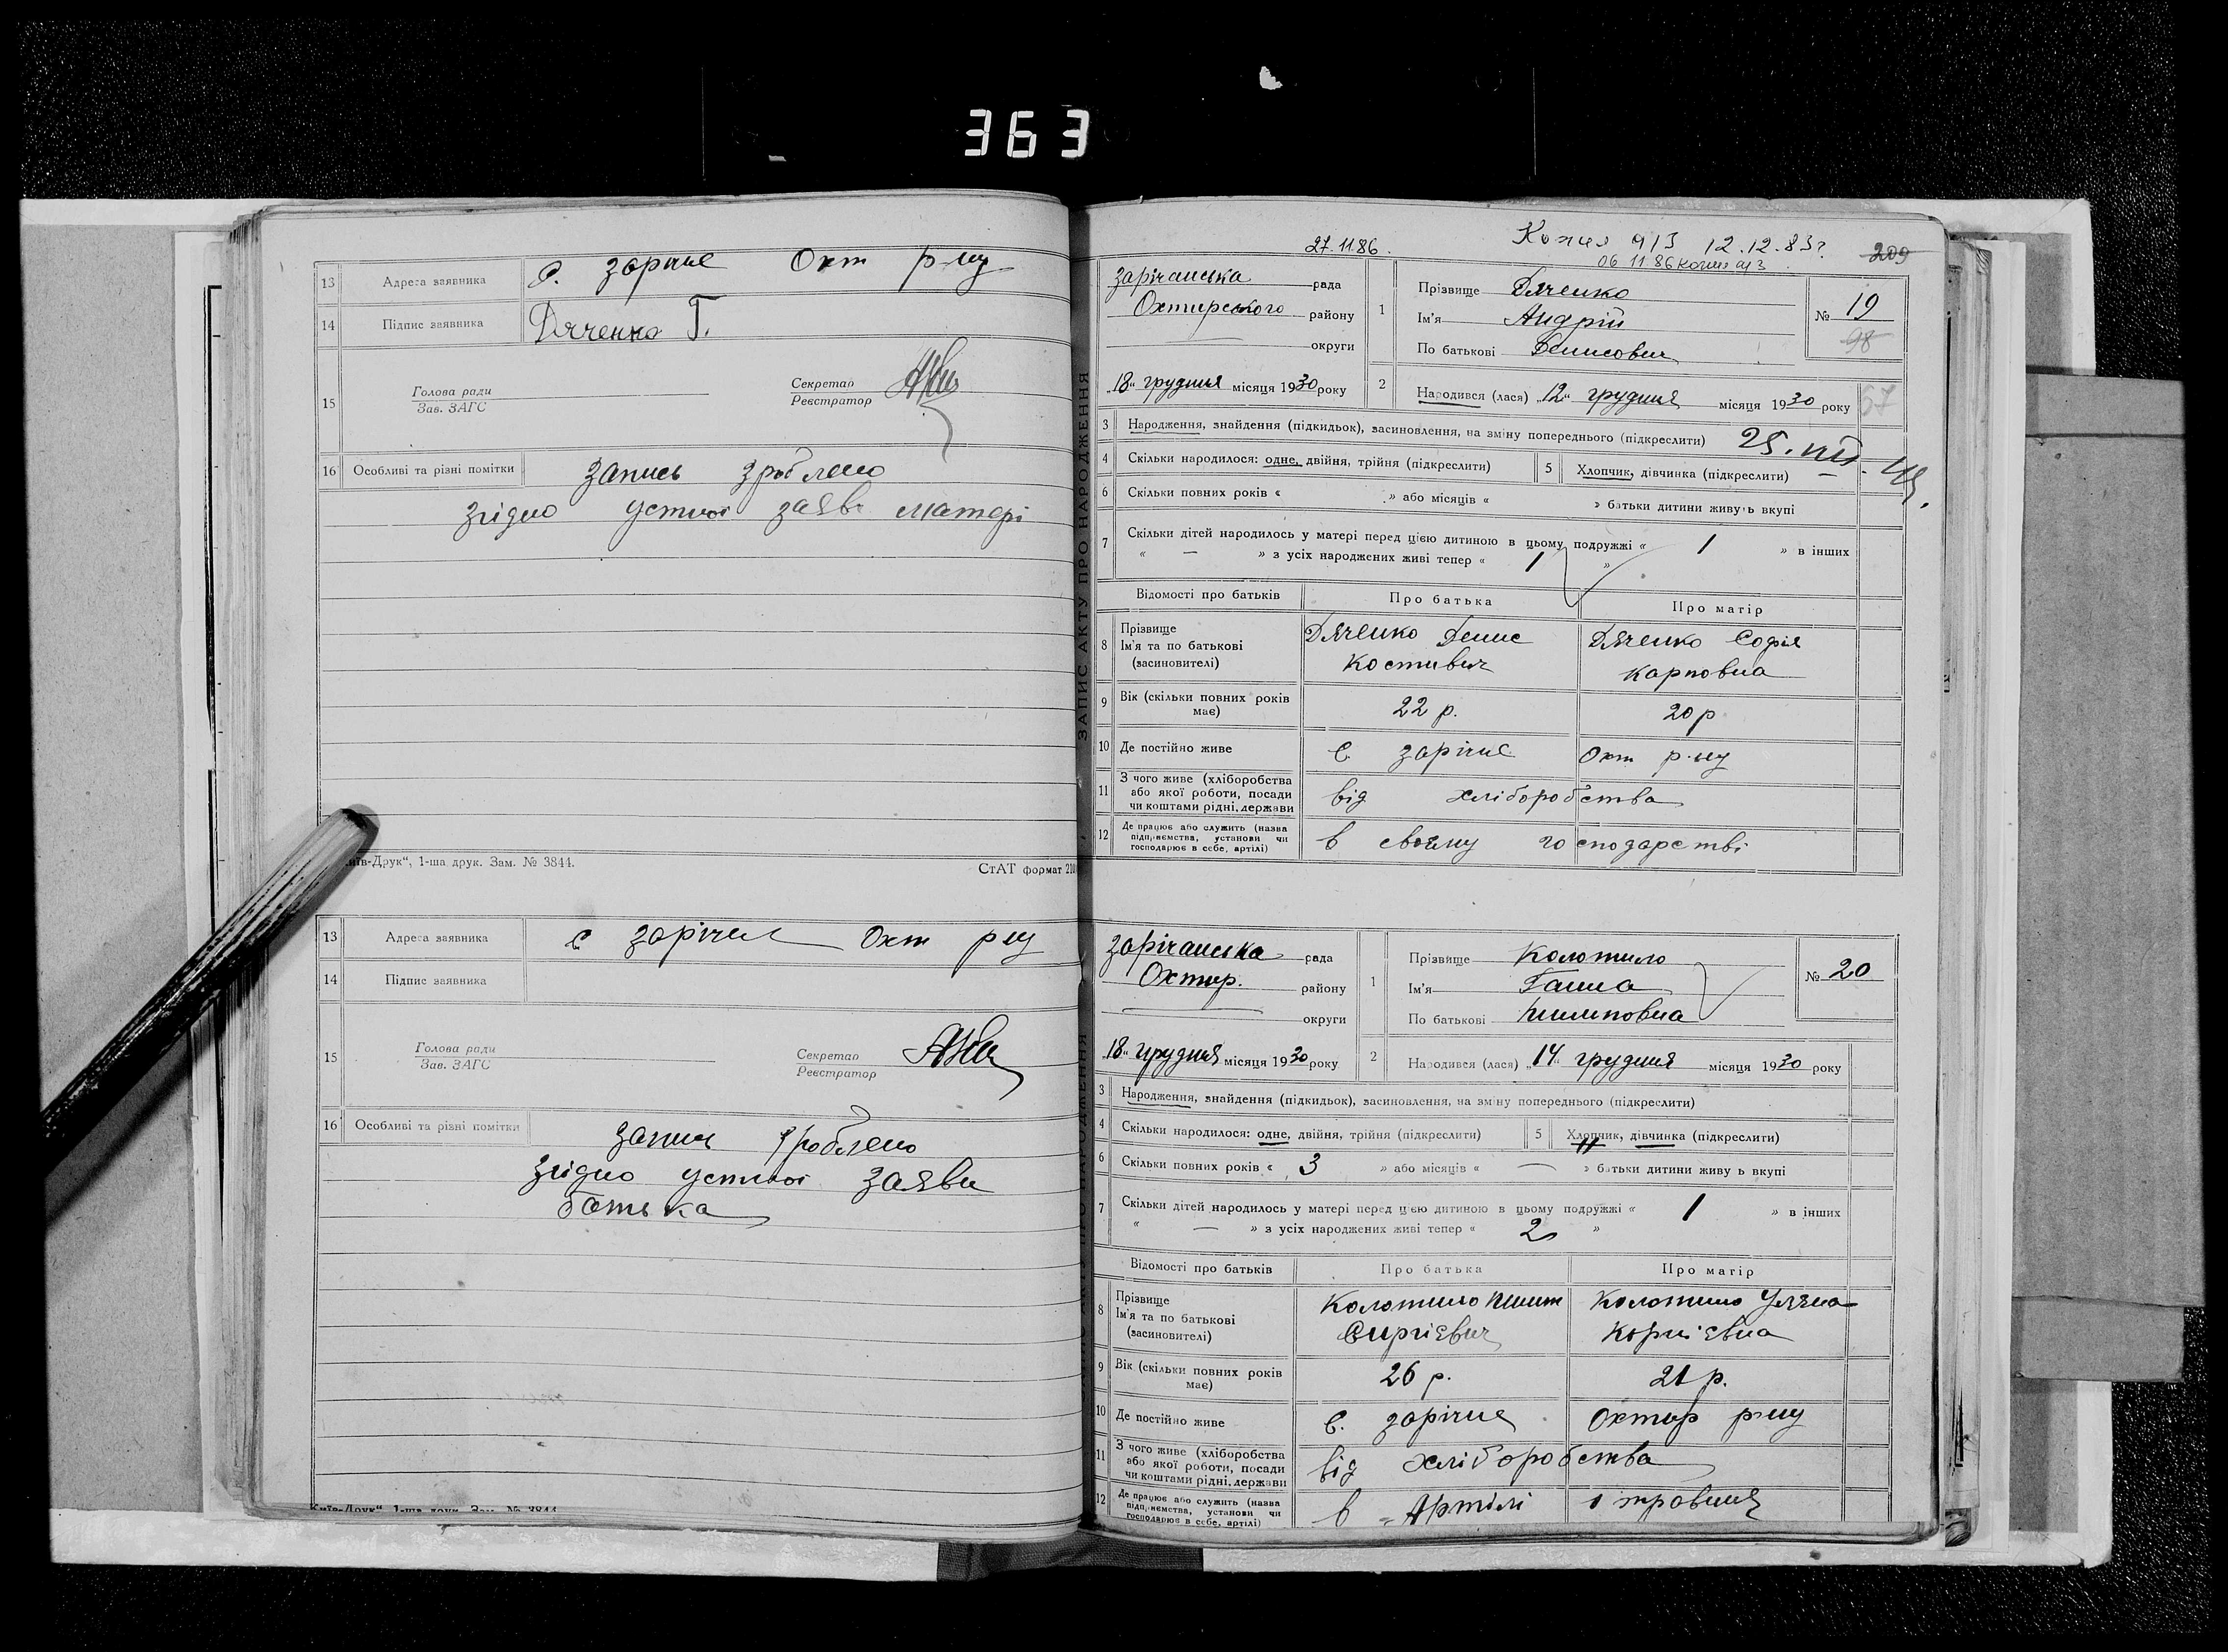 363
13 Адреса заявника с. Зарічне Охт р-ну
14 Підпис заявника Дяченко Г.
15 Голова ради Секретар
Зав. ЗАГС Реєстратор
16 Особливі та різні помітки запись зроблено
згідно устної заяві матері
Київ-Друк“, 1-ша друк. Зам. № 3844.
СтАТ формат 210
13 Адреса заявника с Зарічне Охт рну
14 Підпис заявника
15 Голова ради Секретар
Зав. ЗАГС Реєстратор
16 Особливі та різні помітки запись зроблено
згідно устної заяви
батька
Київ-Друк“, 1-ша друк. Зам. № 3844
ЗАПИС АКТУ ПРО НАРОДЖЕННЯ
27.11.86. Копия 12.12.83г. 209
06 11.86 копия
Зарічанська рада
Охтирського району
округи
„18“ грудня місяця 1930 року
1 Прізвище Дяченко
Ім'я Андрій
По батькові Денисович
№ 19
98
2 Народився (лася) „12“ грудня місяця 1930 року
57
3 Народження, знайдення (підкидьок), засиновлення, на зміну попереднього (підкреслити)
4 Скільки народилося: одне, двійня, трійня (підкреслити) 5 Хлопчик, дівчинка (підкреслити)
6 Скільки повних років « » або місяців « » батьки дитини живуть вкупі
7 Скільки дітей народилось у матері перед цією дитиною в цьому подружжі « 1 » в інших
« — » з усіх народжених живі тепер « 1 »
Відомості про батьків Про батька Про матір
8 Прізвище Дяченко Денис Дяченко Софія
Ім'я та по батькові Костивич Карповна
(засиновителі)
9 Вік (скільки повних років 22 р. 20 р
має)
10 Де постійно живе с Зарічне Охт р-ну
11 З чого живе (хліборобства
або якої роботи, посади від хліборобства
чи коштами рідні, держави
12 Де працює або служить (назва
підприємства, установи чи в своєму господарстві
господарює в себе, артілі)
ЗАПИС АКТУ ПРО НАРОДЖЕННЯ
Зарічанська рада
Охтир. району
округи
„18“ грудня місяця 1930 року
1 Прізвище Колотило
Ім'я Ганна
По батькові Пилиповна
№ 20
2 Народився (лася) „14“ грудня місяця 1930 року
3 Народження, знайдення (підкидьок), засиновлення, на зміну попереднього (підкреслити)
4 Скільки народилося: одне, двійня, трійня (підкреслити) 5 Хлопчик, дівчинка (підкреслити)
6 Скільки повних років « 3 » або місяців « — » батьки дитини живу ь вкупі
7 Скільки дітей народилось у матері перед цією дитиною в цьому подружжі « 1 » в інших
« — » з усіх народжених живі тепер « 2 »
Відомості про батьків Про батька Про матір
8 Прізвище Колотило Пилип Колотило Уляна
Ім'я та по батькові Сиргієвич Корнієвна
(засиновителі)
9 Вік (скільки повних років 26 р. 21 р.
має)
10 Де постійно живе с. Зарічне Охтир р-ну
11 З чого живе (хліборобства
або якої роботи, посади від хліборобства
чи коштами рідні, держави
12 Де працює або служить (назва
підприємства, установи чи в Артілі 1 травня
господарює в себе, артілі)